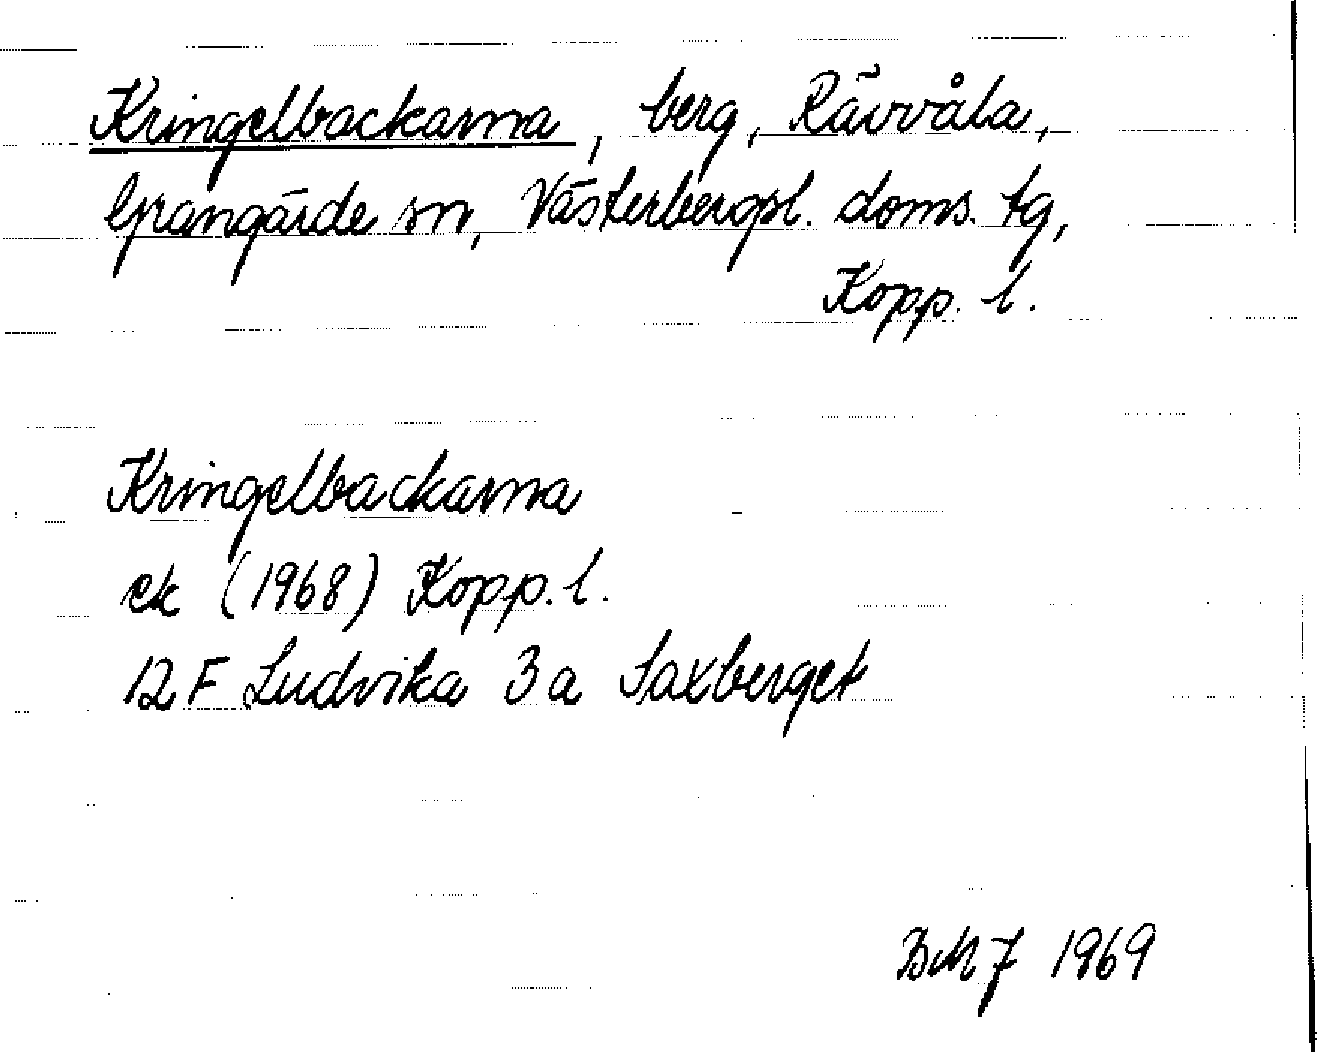 Kringelbackarna, berg, Rävvåla,
Grangärde sn, Västerbergsl. doms. tg,
Kopp. l.
Kringelbackarna
ek (1968) Kopp. l.
12 F Ludvika 3 a Saxberget
BMJ 1969